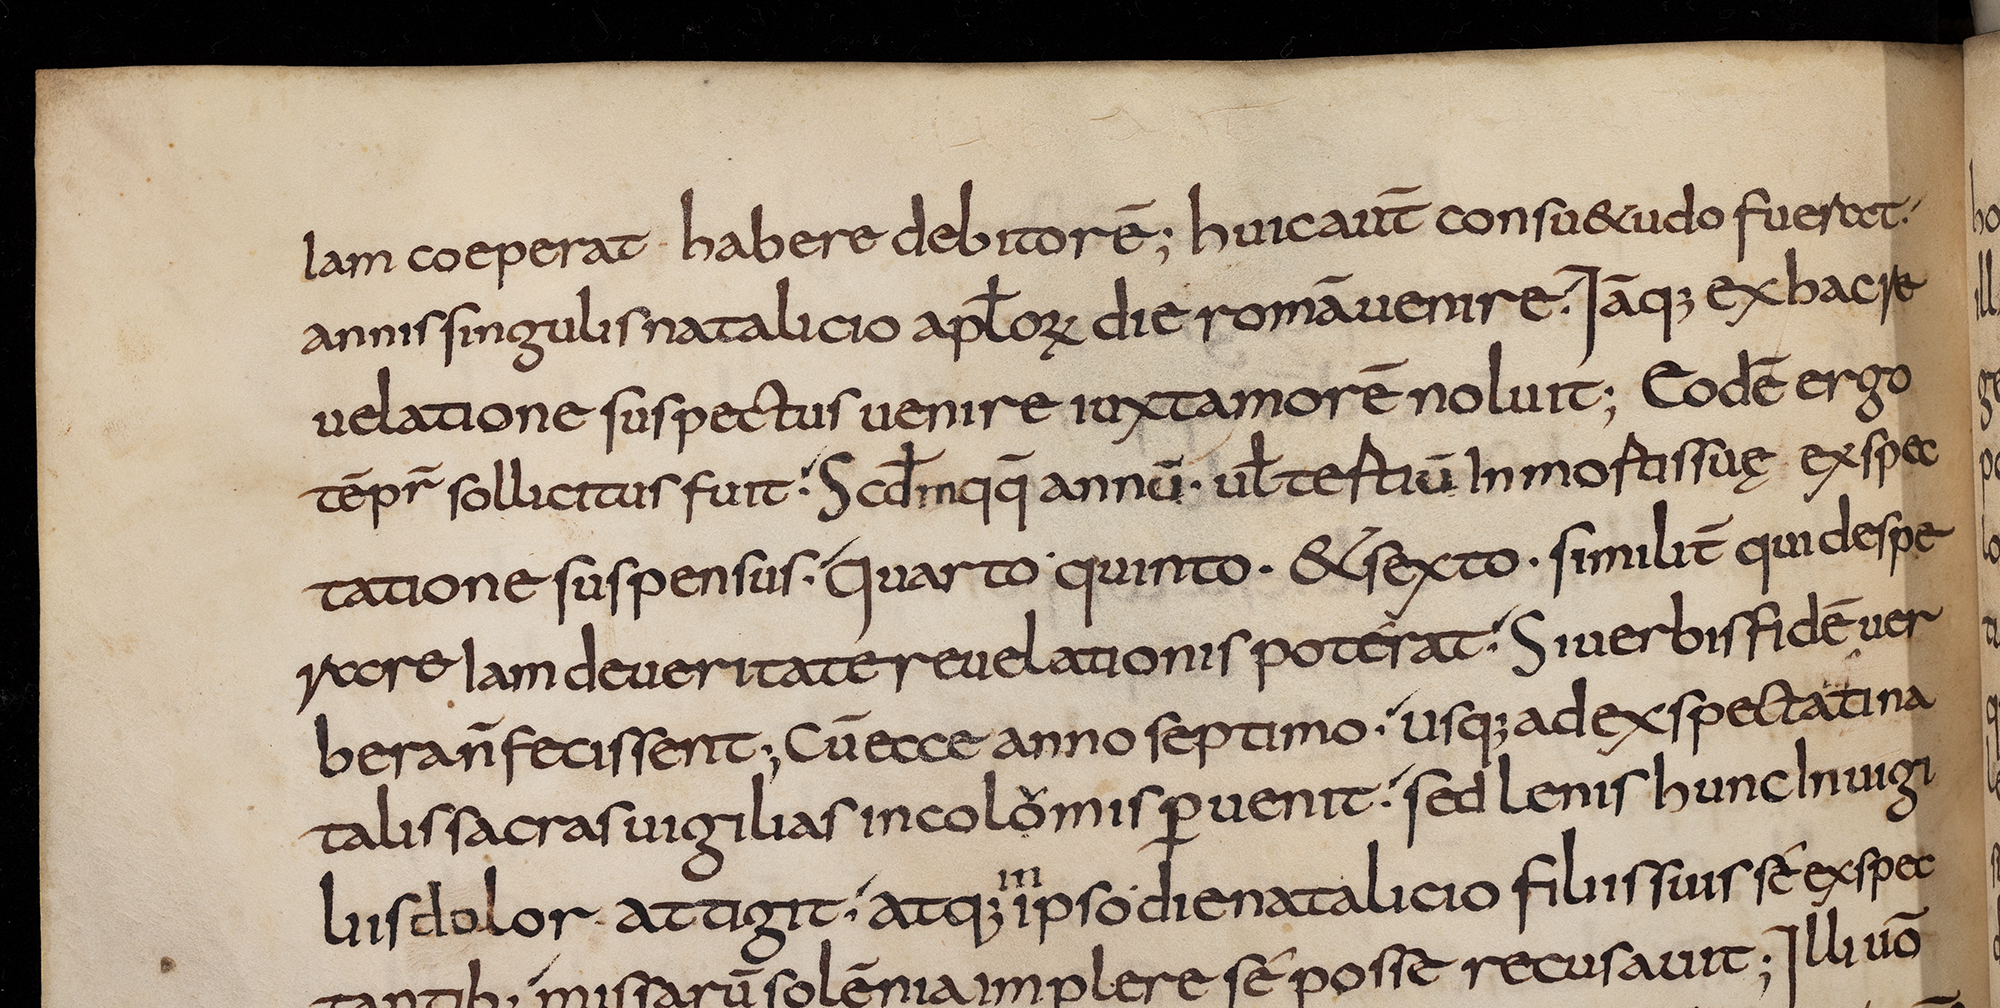 lam coeperat habere debitorē; huic aut̄ consu&udo fuerat.
annis singulis natalicio apl̄oꝝ die romā uenire. Iāq; ex hac re
uelatione suspectus uenire iuxta morē noluit; Eodē ergo
tēpr̄ sollicitus fuit. Scd̄mqq̄ annū. ul̄ tertiū In mortis suę expec
tatione suspensus. Quarto quinto. & sexto. similit̄ qui despe
rare Iam de ueritate reuelationis poterat. Si uerbis fidē uer
beran̄ fecissent; Cū ecce anno septimo. usq; ad expectati na
talis sacras uigilias incolomis ꝑuenit. sed lenis hunc In uigi
liis dolor attigit. atq; in ipso die natalicio filiis suis sé expec
tantib; missarū solēnia implere sé posse recusauit; Illi uō